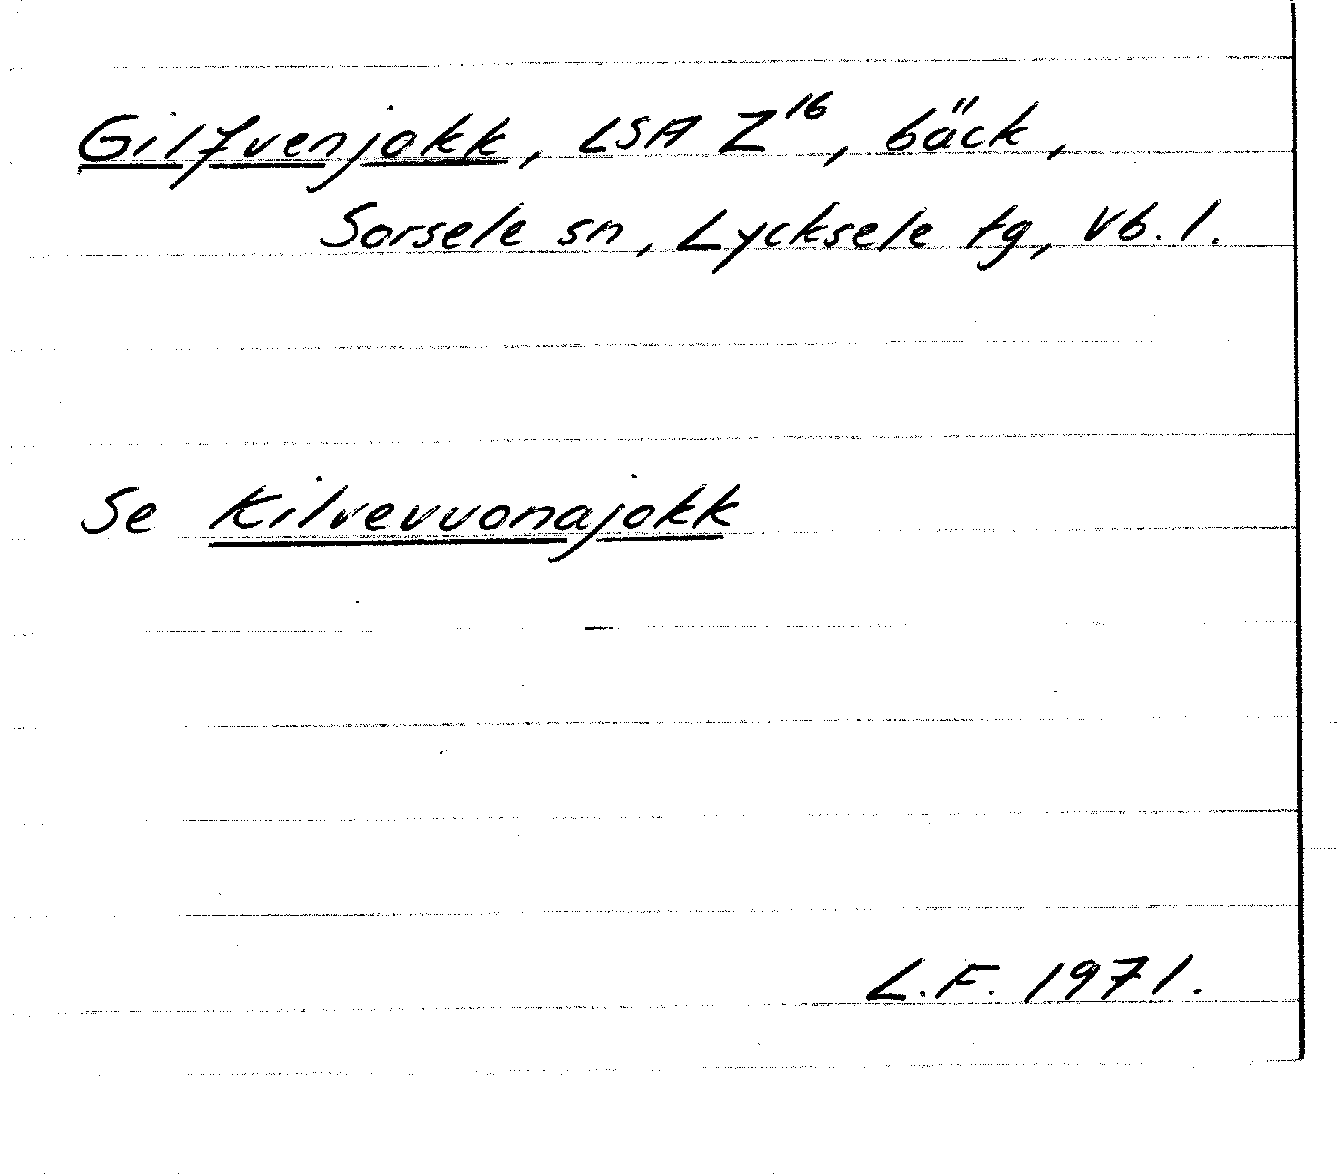 Gilfvenjokk, LSA Z¹⁶, bäck,
Sorsele sn, Lycksele tg, Vb. l.
Se Kilvevuonajokk
L.F. 1971.